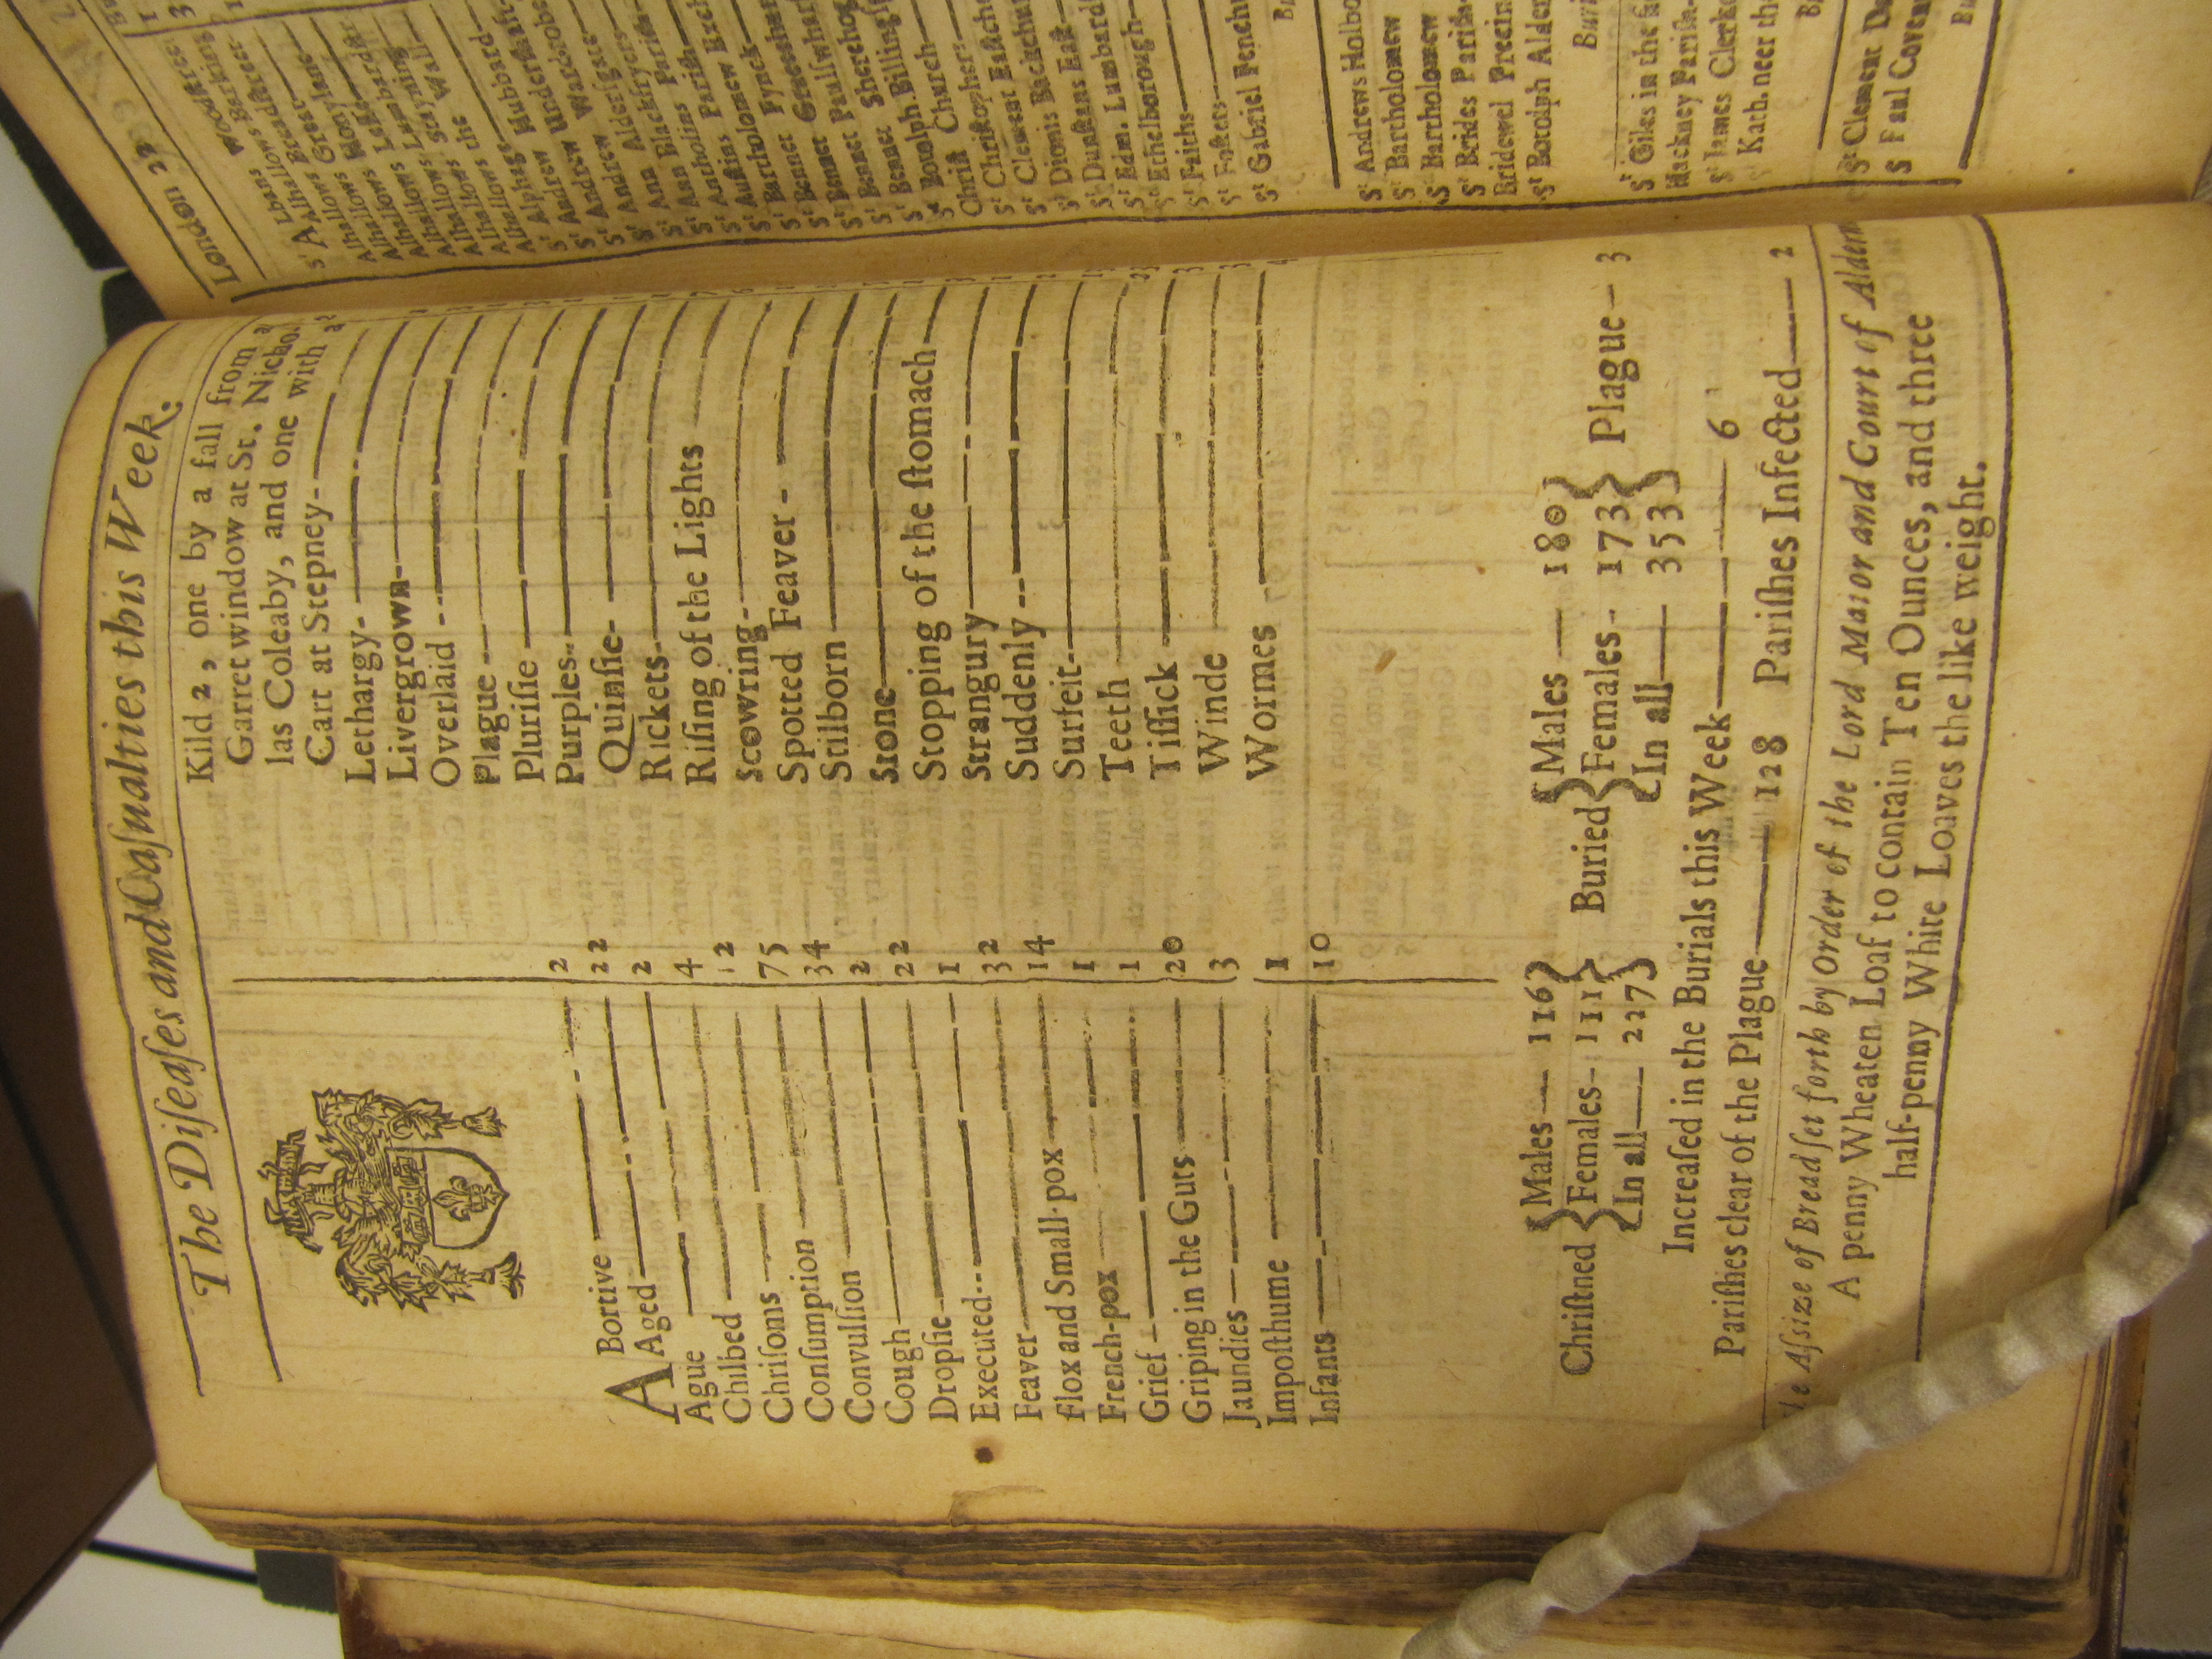 The Diſeaſes and Caſualties this Week.
ABortive 2
Aged 22
Ague 2
Chilbed 4
Chriſons 12
Conſumption 75
Convulſion 34
Cough 2
Dropſie 22
Executed 1
Feaver 32
Flox and Small-pox 14
French-pox 1
Grief 1
Griping in the Guts 20
Jaundies 3
Impoſthume 1
Infants 10
Kild 2, one by a fall from a
Garret window at St. Nicho-
las Coleaby, and one with a
Cart at Stepney
Lethargy
Livergrown
Overlaid
Plague
Pluriſie
Purples
Quinſie
Rickets
Riſing of the Lights
Scowring
Spotted Feaver
Stilborn
Stone
Stopping of the ſtomach
Strangury
Suddenly
Surfeit
Teeth
Tiſſick
Winde
Wormes
Chriſtned { Males — 116 Females — 111 In all — 227 } Buried { Males — 180 Females — 173 In all — 353 } Plague — 3
Increaſed in the Burials this Week — 6
Pariſhes clear of the Plague — 128 Pariſhes Infected — 2
The Aſsize of Bread ſet forth by Order of the Lord Maior and Court of Alderm
A penny Wheaten Loaf to contain Ten Ounces, and three
half-penny White Loaves the like weight.
London 27
Sᵗ Albans Woodſtreet
Alhallows Barking
Alhallows Breadſtreet
Alhallows Great
Alhallows Honylane
Alhallows Leſs
Alhallows Lumbardſtr
Alhallows Stayning
Alhallows the Wall
Sᵗ Alphage
Sᵗ Andrew Hubbard
Sᵗ Andrew Underſhaft
Sᵗ Andrew Wardrobe
Sᵗ Ann Alderſgate
Sᵗ Ann Blackfryers
Sᵗ Antholins Pariſh
Sᵗ Auſtins Pariſh
Sᵗ Bartholomew Exch
Sᵗ Bennet Fynck
Sᵗ Bennet Gracechur
Sᵗ Bennet Paulſwharf
Sᵗ Bennet Sherehog
Sᵗ Botolph Billingſ
Chriſt Church
Sᵗ Chriſtophers
Sᵗ Clement Eaſtche
Sᵗ Dionis Backchur
Sᵗ Dunſtans Eaſt
Sᵗ Edm. Lumbard
Sᵗ Ethelborough
Sᵗ Faiths
Sᵗ Foſters
Sᵗ Gabriel Fenchu
Sᵗ Andrews Holbo
Sᵗ Bartholomew
Sᵗ Bartholomew
Sᵗ Brides Pariſh
Bridewel Precin
Sᵗ Botolph Alder
Sᵗ Giles in the
Hackney Pariſh
Sᵗ James Clerke
Sᵗ Kath. neer the
Sᵗ Clement Da
Sᵗ Paul Coven